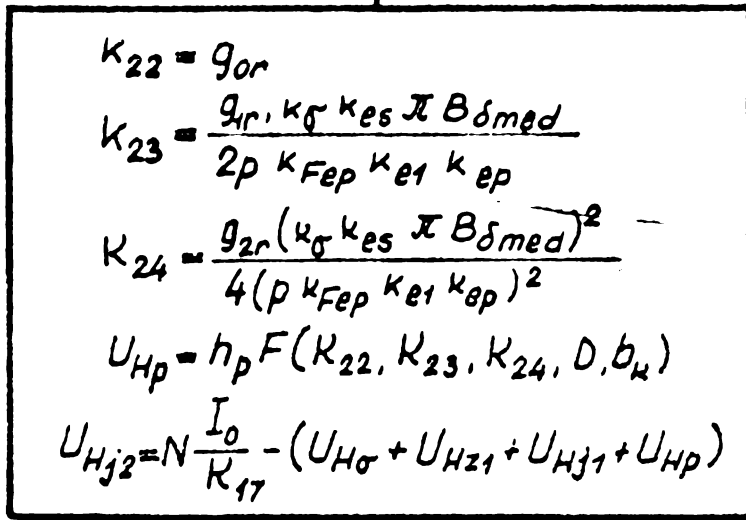 K₂₂ = g₀ᵣ
K₂₃ = g₁ᵣ. k_σ k_es π B_δmed / 2p k_Fep k_e1 k_ep
K₂₄ = g₂ᵣ (k_σ k_es π B_δmed)² / 4(p k_Fep k_e1 k_ep)²
U_Hp = h_p F(K₂₂, K₂₃, K₂₄, D, b_k)
U_Hj2 = N I₀ / K₁₇ - (U_Hσ + U_Hz1 + U_Hj1 + U_Hp)